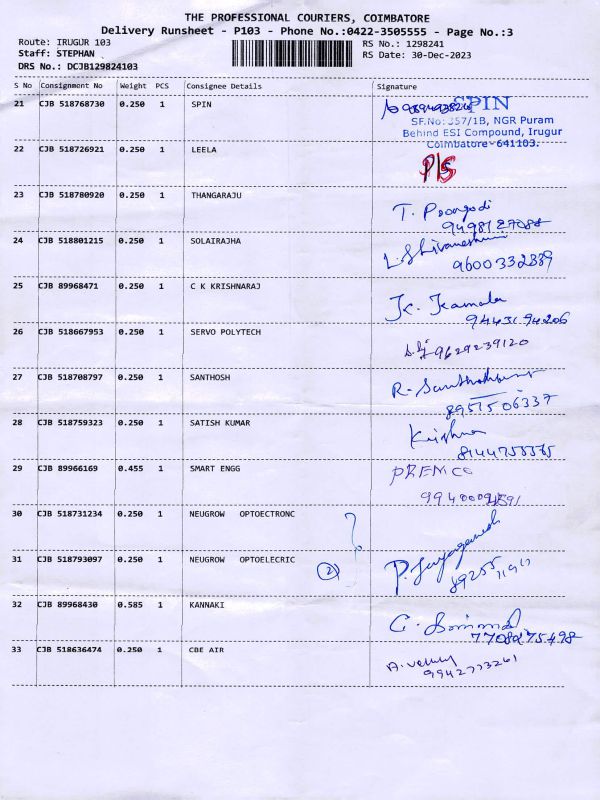 THE PROFESSIONAL COURIERS, COIMBATORE
Delivery Runsheet - P103 - Phone No.:0422-3505555 - Page No.:3
Route: IRUGUR 103
RS No.: 1298241
Staff: STEPHAN
RS Date: 30-Dec-2023
DRS No.: DCJB129824103
S No Consignment No Weight PCS Consignee Details Signature
21 CJB 518768730 0.250 1 SPIN
SPIN
SF.No: 357/1B, NGR Puram
Behind ESI Compound, Irugur
Coimbatore - 641103.
22 CJB 518726921 0.250 1 LEELA
P/S
23 CJB 518780920 0.250 1 THANGARAJU
T. Poongodi
9498127088
24 CJB 518801215 0.250 1 SOLAIRAJHA
9600332889
25 CJB 89968471 0.250 1 C K KRISHNARAJ
K. Kamala
9443194206
26 CJB 518667953 0.250 1 SERVO POLYTECH
9629239120
27 CJB 518708797 0.250 1 SANTHOSH
R. Santhoshkumar
8951506337
28 CJB 518759323 0.250 1 SATISH KUMAR
Krishna
29 CJB 89966169 0.455 1 SMART ENGG
PREMCO
30 CJB 518731234 0.250 1 NEUGROW OPTOECTRONC
31 CJB 518793097 0.250 1 NEUGROW OPTOELECRIC
(2)
32 CJB 89968430 0.585 1 KANNAKI
7708275498
33 CJB 518636474 0.250 1 CBE AIR
9942773261